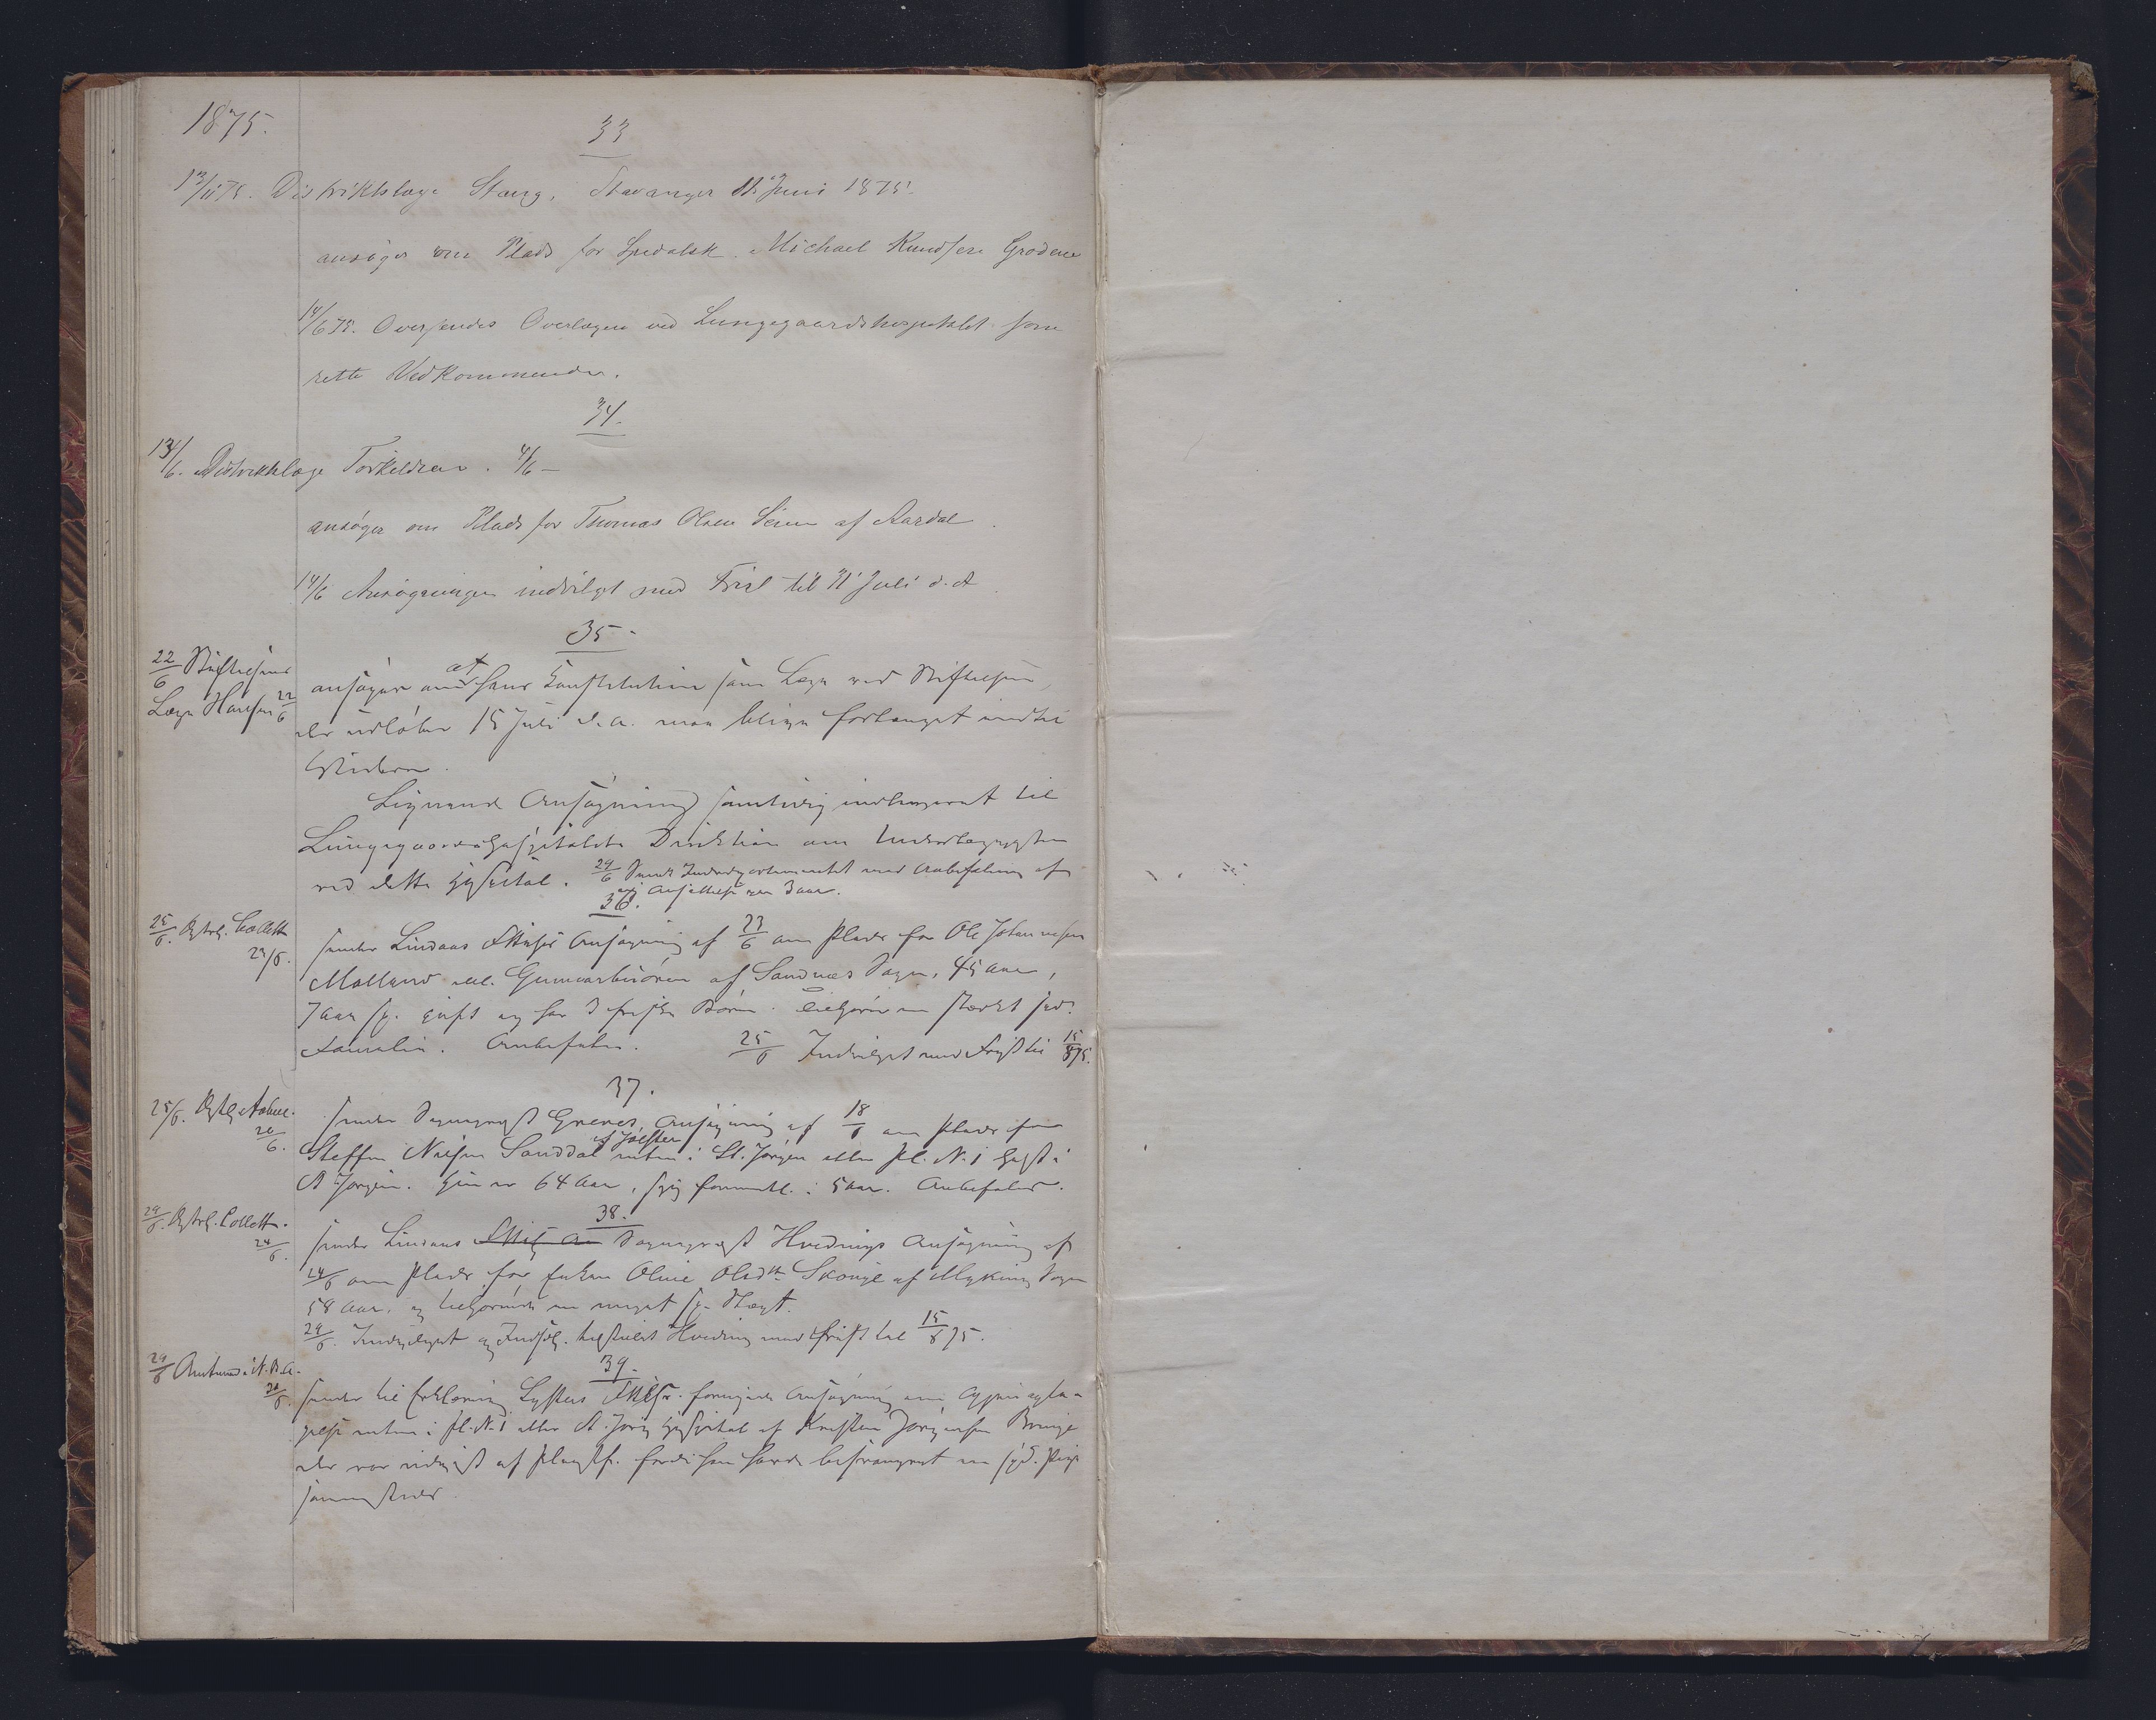 1875.
33
13/6 75. Distriktslæge Stang, Stavanger 11 Juni 1875
ansøger om Plads for Spedalsk. Michael Knudsen Grodene
14/6 75. Oversendes Overlægen ved Lungegaardshospitalet som
rette Vedkommende.
34.
13/6. Distriktslæge Torkildsen. 4/6 –
ansøger om Plads for Thomas Olsen Seim af Aardal
14/6 Ansøgningen indvilget med Frist til 31 Juli d. A
35.
22/6 Stiftelsens
Læge Hansen 22/6
ansøger om at hans Konstitution som Læge ved Stiftelsen,
der udløber 15 Juli d. A. maa blive forlænget indtil
Lignende Ansøgning samtidig indleveret til
Lungegaardshospitalets Direktion om Underlægeposten
ved dette Hospital. 24/6 Sendt Indredepartementet med Anbefaling af
Ansættelse paa 3 Aar.
36.
25/6. Dstrl. Collett
24/6.
sender Lindaas Ansøgning af 23/6 om Plads for Ole Johannesen
Molland af Sandnæs Sogn, 45 Aar,
7 Aar sp. gift og har 3 friske Børn. Tilhører en stærkt spd.
Familie. Anbefales. 25/6 Indvilget med Frist til 15/8 75.
37.
25/6. Dstlg
20/6.
sender Sogneprest Greves Ansøgning af 18/6 om Plads for
Steffen Nilsen Sanddal af Jølster enten i St. Jørgen eller Pl. No 1 helst i
St Jørgen. Hun er 64 Aar, syg i 5 Aar. Anbefales.
38.
29/6. Dstrl. Collett.
24/6.
sender Lindaas Sogneprest Hvedings Ansøgning af
24/6 om Plads for Enken Oline Olsdtr Skouge af Myking Sogn
58 Aar, og tilhørende en meget sp. Slægt.
29/6. Indvilget og Hveding med Frist til 15/8 75.
39.
29/6 Amtmand i N. B. A.
26/6.
sender til Erklæring Lysters Ansøgning om
enten i Pl. No 1 eller St. Jørg Hospital af Kristen Jørgensen Bringe
der var udvist af Plejestft. fordi han havde besvangret en spd. Pige
sammesteds